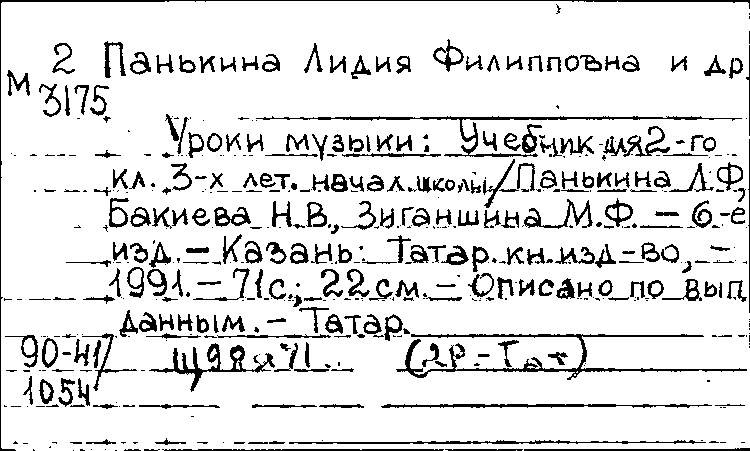 М 2 Панькина Лидия Филипповна и др.
3175
Уроки музыки: Учебник для 2-го
кл. 3-х лет. начал. школы / Панькина Л.Ф,
Бакиева Н.В., Зиганшина М.Ф. – 6-е
изд. – Казань: Татар. кн. изд-во, –
1991. – 71 с.; 22 см. – Описано по вып.
данным. – Татар.
90-41/ Щ98я71.. (2Р.-Тат)
1054